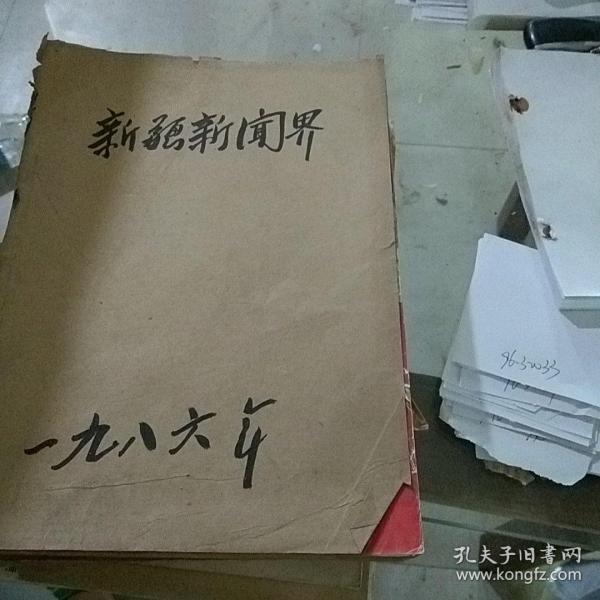 新疆新闻界
一九八六年
96-3-2033
孔夫子旧书网
www.kongfz.com